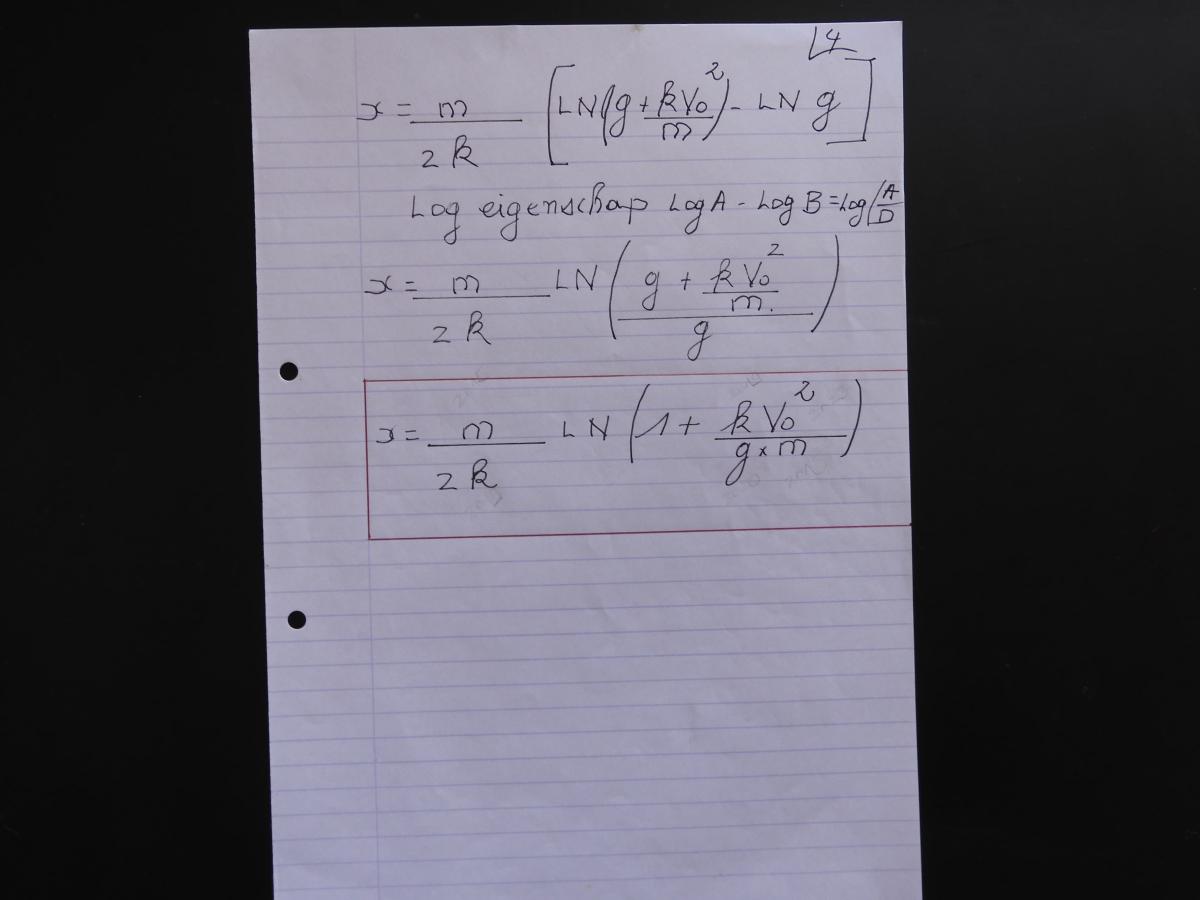 4
x = m/2k [LN(g + kV₀²/m) - LN g]
Log eigenschap Log A - Log B = Log(A/D
x = m/2k LN((g + kV₀²/m.)/g)
x = m/2k LN(1 + kV₀²/g×m)